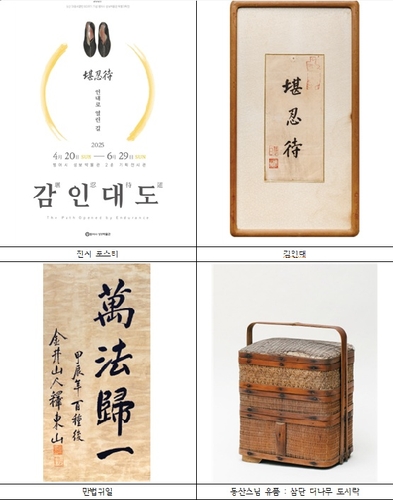 堪忍待
인내로 열린 길
2025
4월 20일 — 6월 29일
감인대도
堪 忍 待 道
The Path Opened by Endurance
전시 포스터
堪忍待
감인대
萬法歸一
甲辰年 百種後
金井山人釋東山
만법귀일
동산스님 유품 : 삼단 대나무 도시락